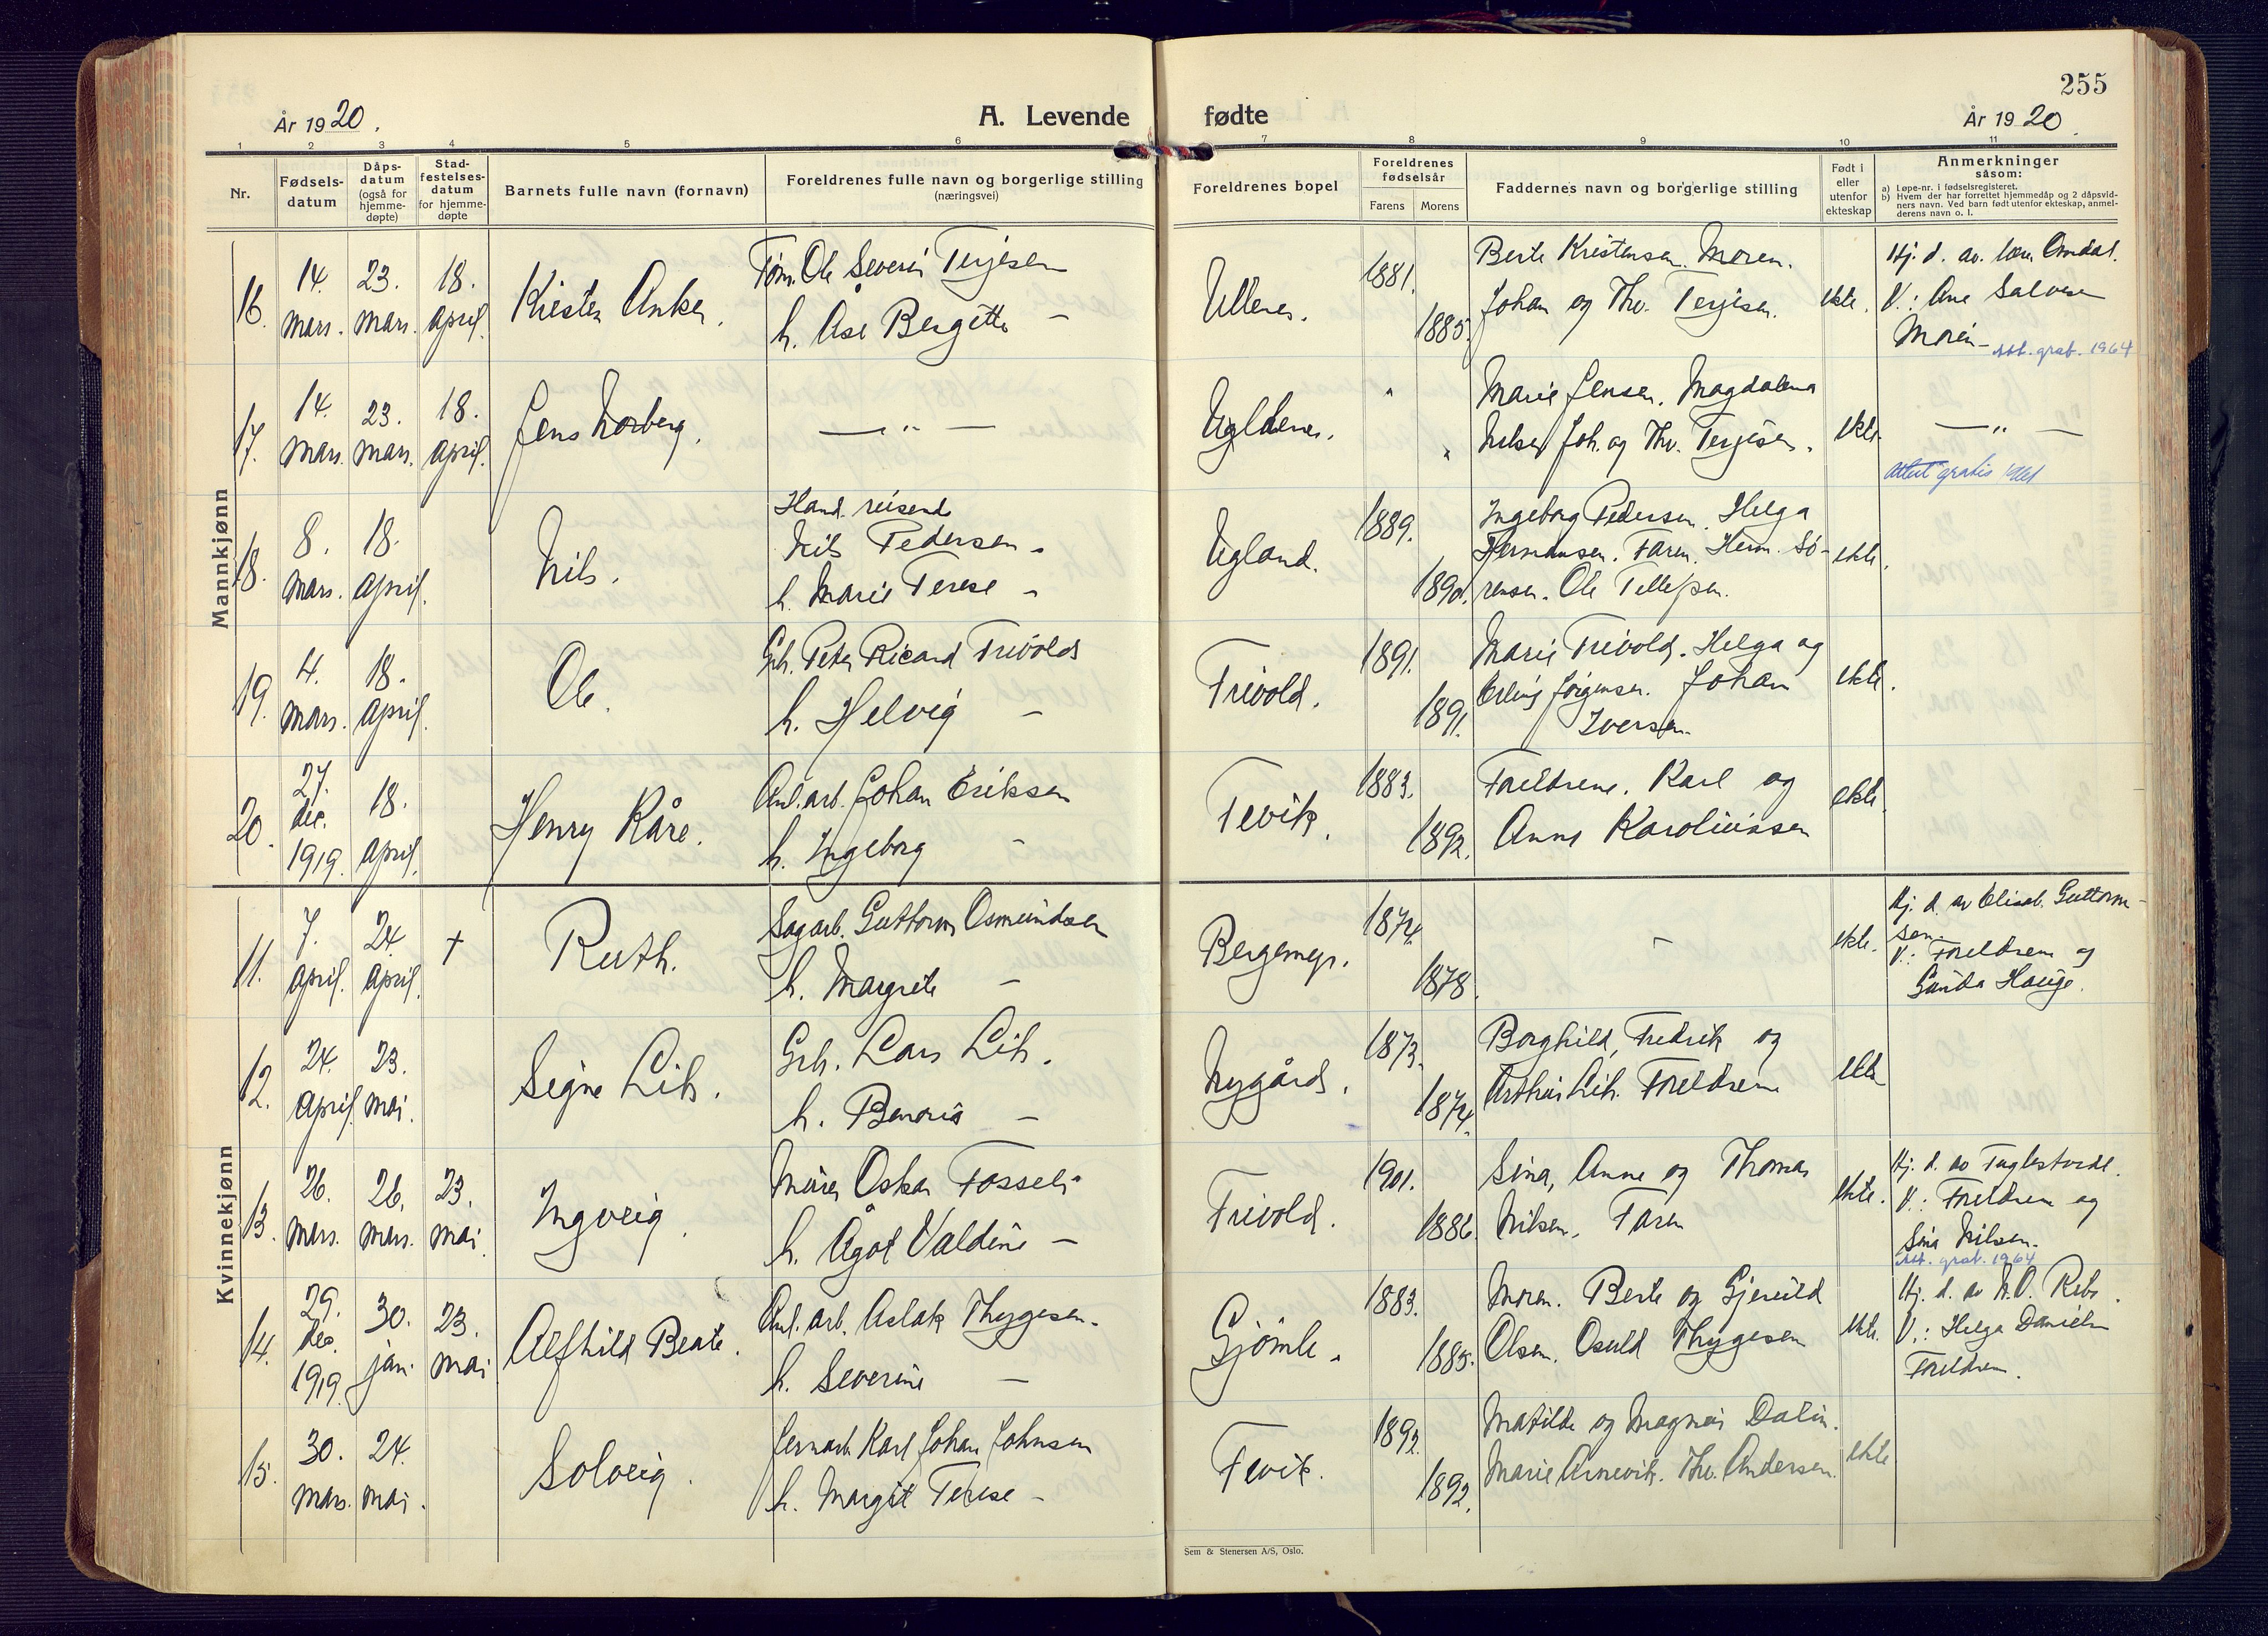 255
År 1920.
A. Levende fødte
År 1920.
1 2 3 4 5 6 7 8 9 10 11
Nr.
Fødsels-
datum
Dåps-
datum
(også for
hjemme-
døpte)
Stad-
festelses-
datum
for hjemme-
døpte
Barnets fulle navn (fornavn)
Foreldrenes fulle navn og borgerlige stilling
(næringsvei)
Foreldrenes bopel
Foreldrenes
fødselsår
Farens Morens
Faddernes navn og borgerlige stilling
Født i
eller
utenfor
ekteskap
Anmerkninger
såsom:
a) Løpe-nr. i fødselsregisteret.
b) Hvem der har forrettet hjemmedåp og 2 dåpsvid-
ners navn. Ved barn født utenfor ekteskap, anmel-
derens navn o. l.
Mannkjønn
16.
14.
mars.
23.
mars.
18.
april.
Kirsten Anker.
Tøm. Ole Severin Terjesen
h. Åse Bergitte —
1881.
1885.
Berte Kristensen. Moren.
Johan og Thv. Terjesen.
ekte.
Hj. d. av lær. Omdal.
V.: Ane Salvesen
Moren
Att. grat. 1964
17.
14.
mars.
23.
mars.
18.
april.
Jens Norberg.
— „ —
Uglenes.
„
„
Marie Jensen. Magdalena
Nilsen Joh. og Thv. Terjesen.
ekte.
— „ —
Attest gratis
18.
8.
mars.
18.
april.
Nils.
Hand. reisende
Nils Pedersen.
h. Marie Terese —
Ugland.
1889.
1890.
Ingeborg Pedersen. Helga
Hermansen. Faren. Herm. Sö-
rensen. Ole Tellefsen.
ekte.
19.
4.
mars.
18.
april.
Ole.
Grb. Peter Ricard Trivolds
h. Helvig —
Frivold.
1891.
1891.
Marie Frivold. Helga og
Erling Jörgensen. Johan
Iversen.
ekte.
20.
27.
dec.
1919.
18.
april.
Henry Kåre.
Anl. arb. Johan Eriksen
h. Ingeborg —
Fevik.
1883.
1892.
Foreldrene. Karl og
Anne Karolinssen
ekte.
Kvinnekjønn
11.
7.
april.
24.
april.
†
Ruth.
Sagarb. Guttorm Osmundsen
h. Margrete —
1874.
1878.
—
ekte.
Hj. d. av Elisab. Guttorm-
sen.
V.: Foreldrene og
Gunda Hauge.
12.
24.
april.
23.
mai.
Signe Lih.
Grb. Lars Lih.
h. —
Nygårds.
1873.
1874.
Borghild, Fredrik og
Arthur Lih. Foreldrene
ekte
13.
26.
mars.
26.
mars.
23.
mai.
Ingveig.
Murer Oskar Fosseli
h. Ågot Valdine —
Frivold.
1901.
1886.
Sina, Anne og Thomas
Nilsen. Faren
ekte.
Hj. d. av Fuglestvedt.
V.: Foreldrene og
Sina Nilsen.
Att. grat. 1964
14.
29.
dec.
1919.
30.
jan.
23.
mai
Alfhild Beate.
Anl. arb. Aslak Thygesen.
h. Severine —
Gjömle.
1883.
1885.
Moren. Berte og Gjeruld
Olsen. Osuld Thygesen
ekte.
Hj. d. av A.O. Ribe.
V.: Helga Danielsen
Foreldrene.
15.
30.
mars.
24.
mai.
Solveig.
Jernarb. Karl Johan Johnsen
h. Margit Terese —
Fevik.
1892.
1892.
Matilde og Magnus Dalin.
Marie Arnevik. Thv. Andersen.
ekte
Sem & Stenersen A/S, Oslo.